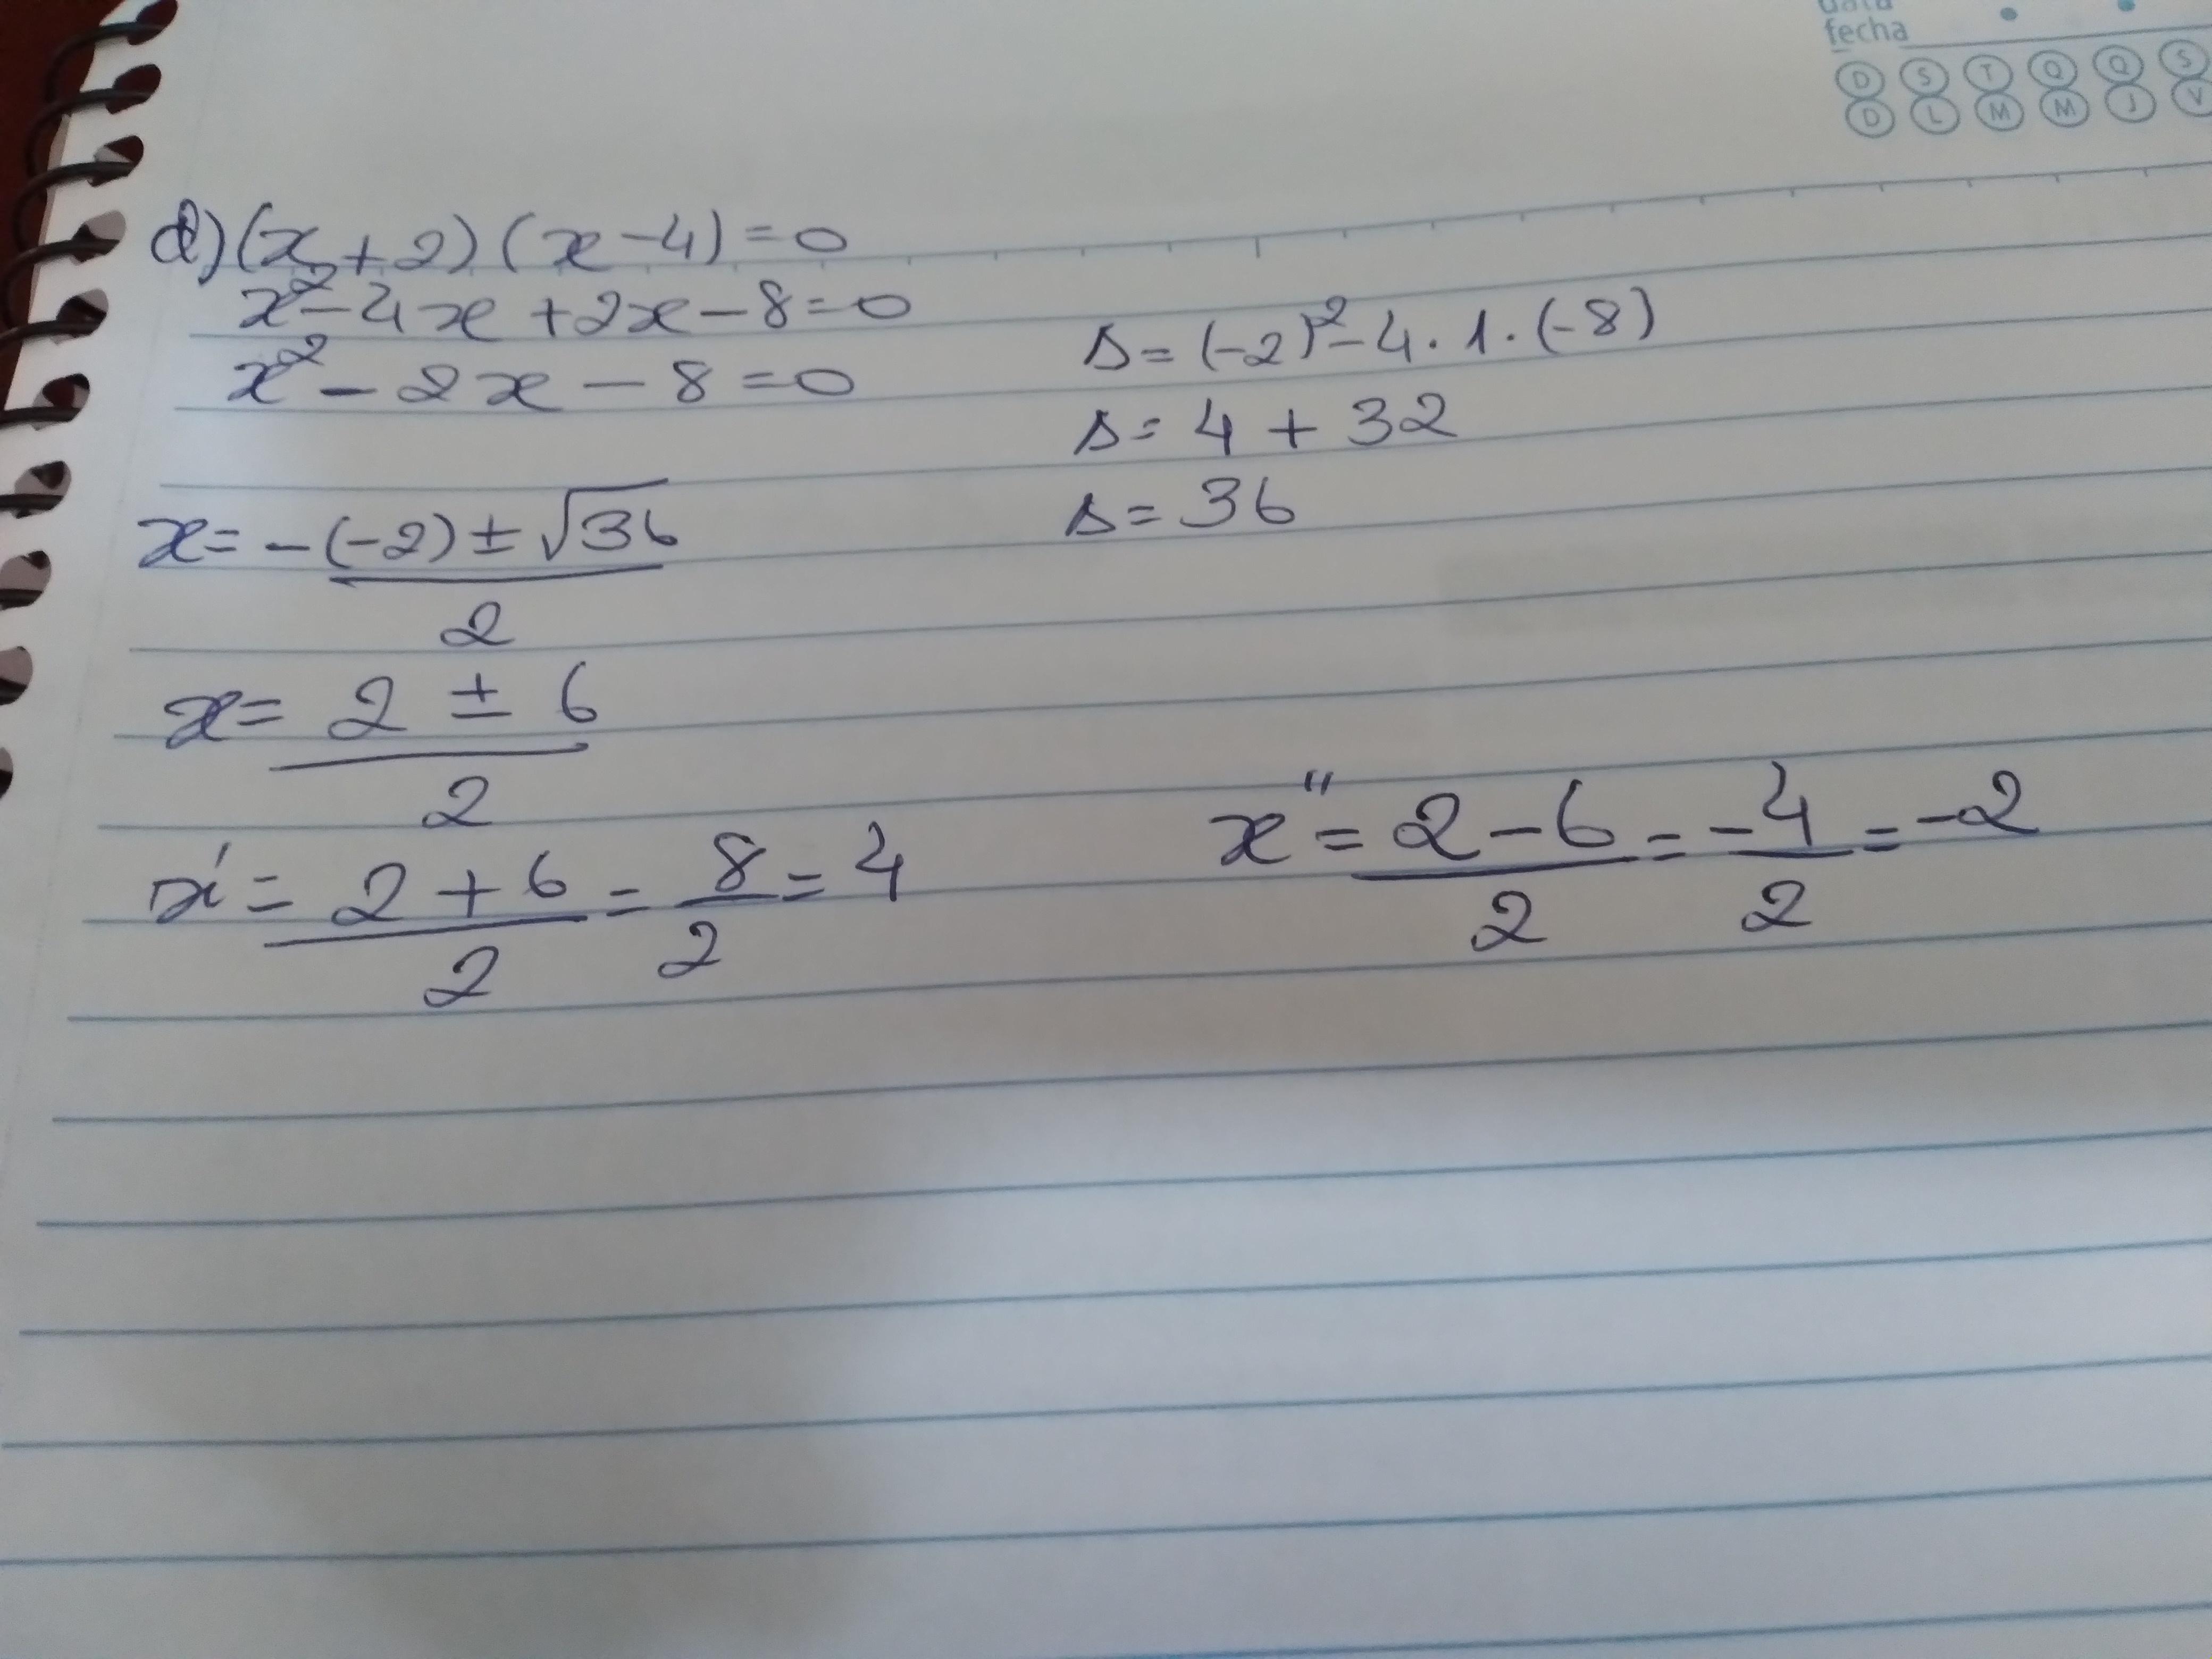 data
fecha
D S T Q Q S
D L M M J V
d) (x+2) (x-4)=0
x²-4x+2x-8=0
x² - 2x - 8 =0
Δ= (-2)²-4.1.(-8)
Δ= 4 + 32
Δ= 36
x= -(-2) ± √36
2
x= 2 ± 6
2
x' = 2 + 6 = 8 = 4
2 2
x" = 2 - 6 = -4 = -2
2 2